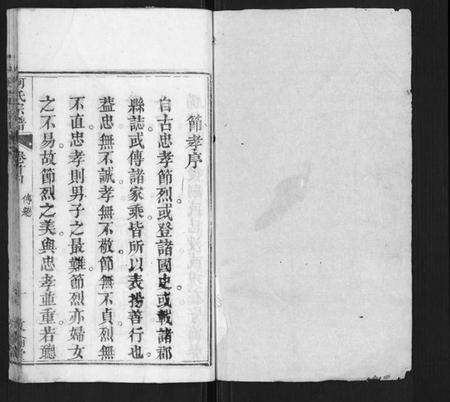 節孝序
自古忠孝節烈或登諸國史或載諸郡
縣誌或傳諸家乘皆所以表揚善行也
蓋忠無不誠孝無不敬節無不貞烈無
不直忠孝則男子之最難節烈亦婦女
之不易故節烈之美與忠孝並重若聽
何氏宗譜
傳總